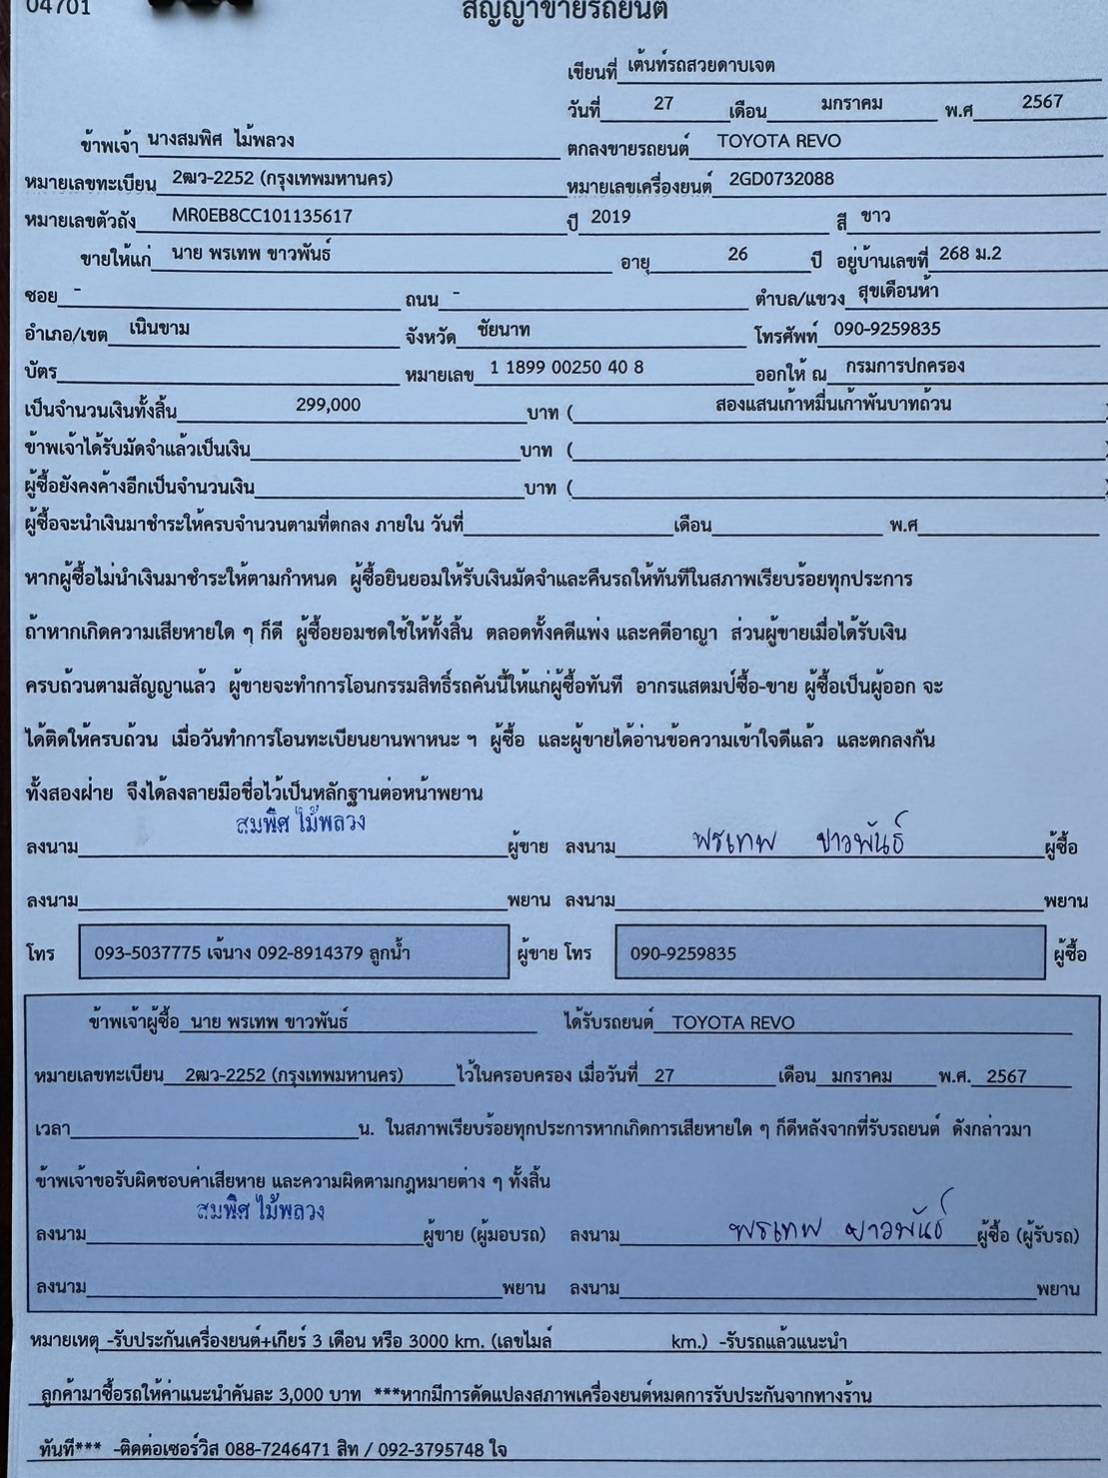 04701
สัญญาขายรถยนต์
เขียนที่ เต้นท์รถสวยดาบเจต
วันที่ 27 เดือน มกราคม พ.ศ 2567
ข้าพเจ้า นางสมพิศ ไม้พลวง ตกลงขายรถยนต์ TOYOTA REVO
หมายเลขทะเบียน 2ฒว-2252 (กรุงเทพมหานคร) หมายเลขเครื่องยนต์ 2GD0732088
หมายเลขตัวถัง MR0EB8CC101135617 ปี 2019 สี ขาว
ขายให้แก่ นาย พรเทพ ขาวพันธ์ อายุ 26 ปี อยู่บ้านเลขที่ 268 ม.2
ซอย - ถนน - ตำบล/แขวง สุขเดือนห้า
อำเภอ/เขต เนินขาม จังหวัด ชัยนาท โทรศัพท์ 090-9259835
บัตร หมายเลข 1 1899 00250 40 8 ออกให้ ณ กรมการปกครอง
เป็นจำนวนเงินทั้งสิ้น 299,000 บาท ( สองแสนเก้าหมื่นเก้าพันบาทถ้วน )
ข้าพเจ้าได้รับมัดจำแล้วเป็นเงิน บาท ( )
ผู้ซื้อยังคงค้างอีกเป็นจำนวนเงิน บาท ( )
ผู้ซื้อจะนำเงินมาชำระให้ครบจำนวนตามที่ตกลง ภายใน วันที่ เดือน พ.ศ
หากผู้ซื้อไม่นำเงินมาชำระให้ตามกำหนด ผู้ซื้อยินยอมให้รับเงินมัดจำและคืนรถให้ทันทีในสภาพเรียบร้อยทุกประการ
ถ้าหากเกิดความเสียหายใด ๆ ก็ดี ผู้ซื้อยอมชดใช้ให้ทั้งสิ้น ตลอดทั้งคดีแพ่ง และคดีอาญา ส่วนผู้ขายเมื่อได้รับเงิน
ครบถ้วนตามสัญญาแล้ว ผู้ขายจะทำการโอนกรรมสิทธิ์รถคันนี้ให้แก่ผู้ซื้อทันที อากรแสตมป์ซื้อ-ขาย ผู้ซื้อเป็นผู้ออก จะ
ได้ติดให้ครบถ้วน เมื่อวันทำการโอนทะเบียนยานพาหนะ ฯ ผู้ซื้อ และผู้ขายได้อ่านข้อความเข้าใจดีแล้ว และตกลงกัน
ทั้งสองฝ่าย จึงได้ลงลายมือชื่อไว้เป็นหลักฐานต่อหน้าพยาน
ลงนาม สมพิศ ไม้พลวง ผู้ขาย ลงนาม พรเทพ ขาวพันธ์ ผู้ซื้อ
ลงนาม พยาน ลงนาม พยาน
โทร 093-5037775 เจ้นาง 092-8914379 ลูกน้ำ ผู้ขาย โทร 090-9259835 ผู้ซื้อ
ข้าพเจ้าผู้ซื้อ นาย พรเทพ ขาวพันธ์ ได้รับรถยนต์ TOYOTA REVO
หมายเลขทะเบียน 2ฒว-2252 (กรุงเทพมหานคร) ไว้ในครอบครอง เมื่อวันที่ 27 เดือน มกราคม พ.ศ. 2567
เวลา น. ในสภาพเรียบร้อยทุกประการหากเกิดการเสียหายใด ๆ ก็ดีหลังจากที่รับรถยนต์ ดังกล่าวมา
ข้าพเจ้าขอรับผิดชอบค่าเสียหาย และความผิดตามกฎหมายต่าง ๆ ทั้งสิ้น
ลงนาม สมพิศ ไม้พลวง ผู้ขาย (ผู้มอบรถ) ลงนาม พรเทพ ขาวพันธ์ ผู้ซื้อ (ผู้รับรถ)
ลงนาม พยาน ลงนาม พยาน
หมายเหตุ -รับประกันเครื่องยนต์+เกียร์ 3 เดือน หรือ 3000 km. (เลขไมล์ km.) -รับรถแล้วแนะนำ
ลูกค้ามาซื้อรถให้ค่าแนะนำคันละ 3,000 บาท ***หากมีการดัดแปลงสภาพเครื่องยนต์หมดการรับประกันจากทางร้าน
ทันที*** -ติดต่อเซอร์วิส 088-7246471 สิท / 092-3795748 ใจ